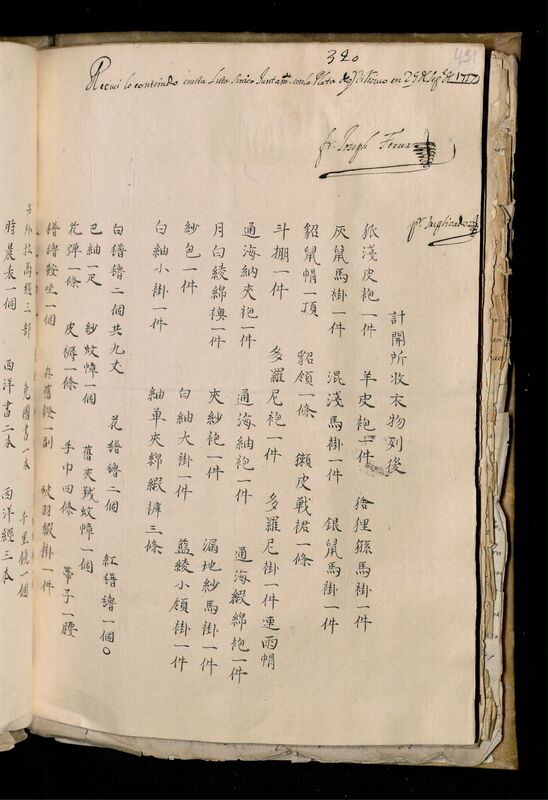 320
451
Recivi lo contenido en esta Lista Sinica Juntamte. con la Plata de
en 29 de 1717
fr. Joseph Ferrer
pr. Duplicado
計開所收衣物列後
狐淺皮袍一件 羊皮袍一件 猞狸猻馬褂一件
灰鼠馬褂一件 混淺馬褂一件 銀鼠馬褂一件
貂鼠帽一頂 貂領一條 獺皮戰裙一條
斗棚一件 多羅尼袍一件 多羅尼褂一件連雨帽
通海納夾袍一件 通海紬袍一件 通海緞綿袍一件
月白綾綿襖一件 夾紗袍一件 漏地紗馬褂一件
紗包一件 白紬大褂一件 藍綾小領褂一件
白紬小褂一件 紬單夾綿緞褲三條
白氆氌二個共九丈 花氆氌二個 紅氆氌一個
巴紬一疋 紗蚊幃一個 舊夾戝蚊幃一個
花彈一條 皮褥一條 手巾四條 帶子一腰
氆氌鞍坐一個 舊鐙一副 破羽緞褂一件
另外拉馬經三部 一本 千里鏡一個
時晨表一個 西洋書二本 西洋經三本